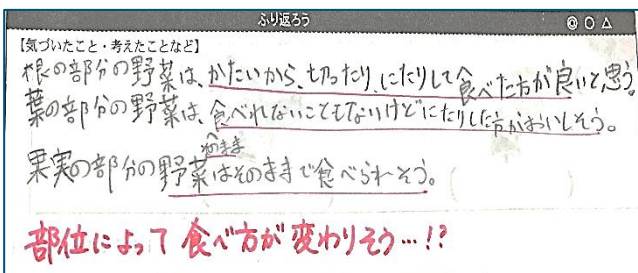 ふり返ろう ◎ ○ △
【気づいたこと・考えたことなど】
根の部分の野菜は、かたいから、切ったり、にたりして食べた方が良いと思う。
葉の部分の野菜は、食べれないこともないけどにたりした方がおいしそう。
そのまま
果実の部分の野菜はそのままで食べられそう。
部位によって食べ方が変わりそう…!?